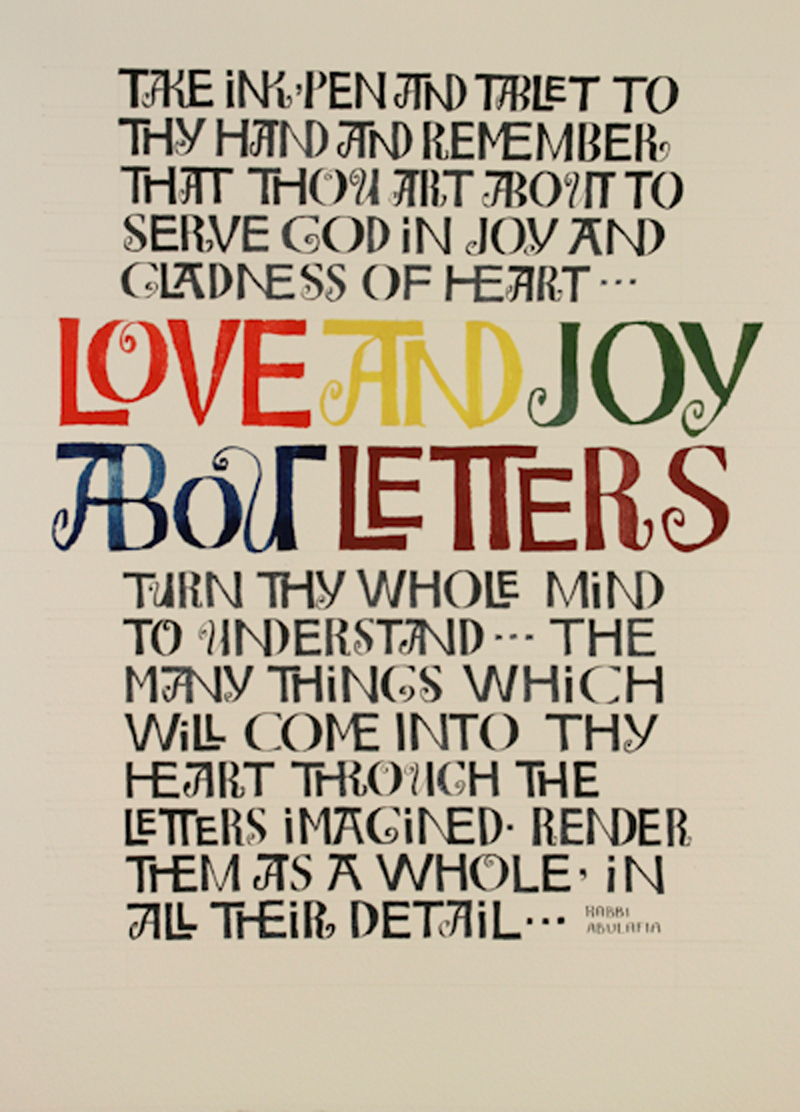 TAKE INK, PEN AND TABLET TO
THY HAND AND REMEMBER
THAT THOU ART ABOUT TO
SERVE GOD IN JOY AND
GLADNESS OF HEART ...
LOVE AND JOY
ABOUT LETTERS
TURN THY WHOLE MIND
TO UNDERSTAND ... THE
MANY THINGS WHICH
WILL COME INTO THY
HEART THROUGH THE
LETTERS IMAGINED. RENDER
THEM AS A WHOLE, IN
ALL THEIR DETAIL ...
RABBI
ABULAFIA